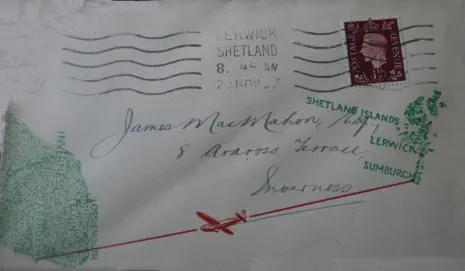 LERWICK
SHETLAND
8. 45 AM
2 NOV 37
POSTAGE REVENUE
SHETLAND ISLANDS
LERWICK
SUMBURGH
James MacMahon, Esq,
8 Ardross Terrace,
Inverness